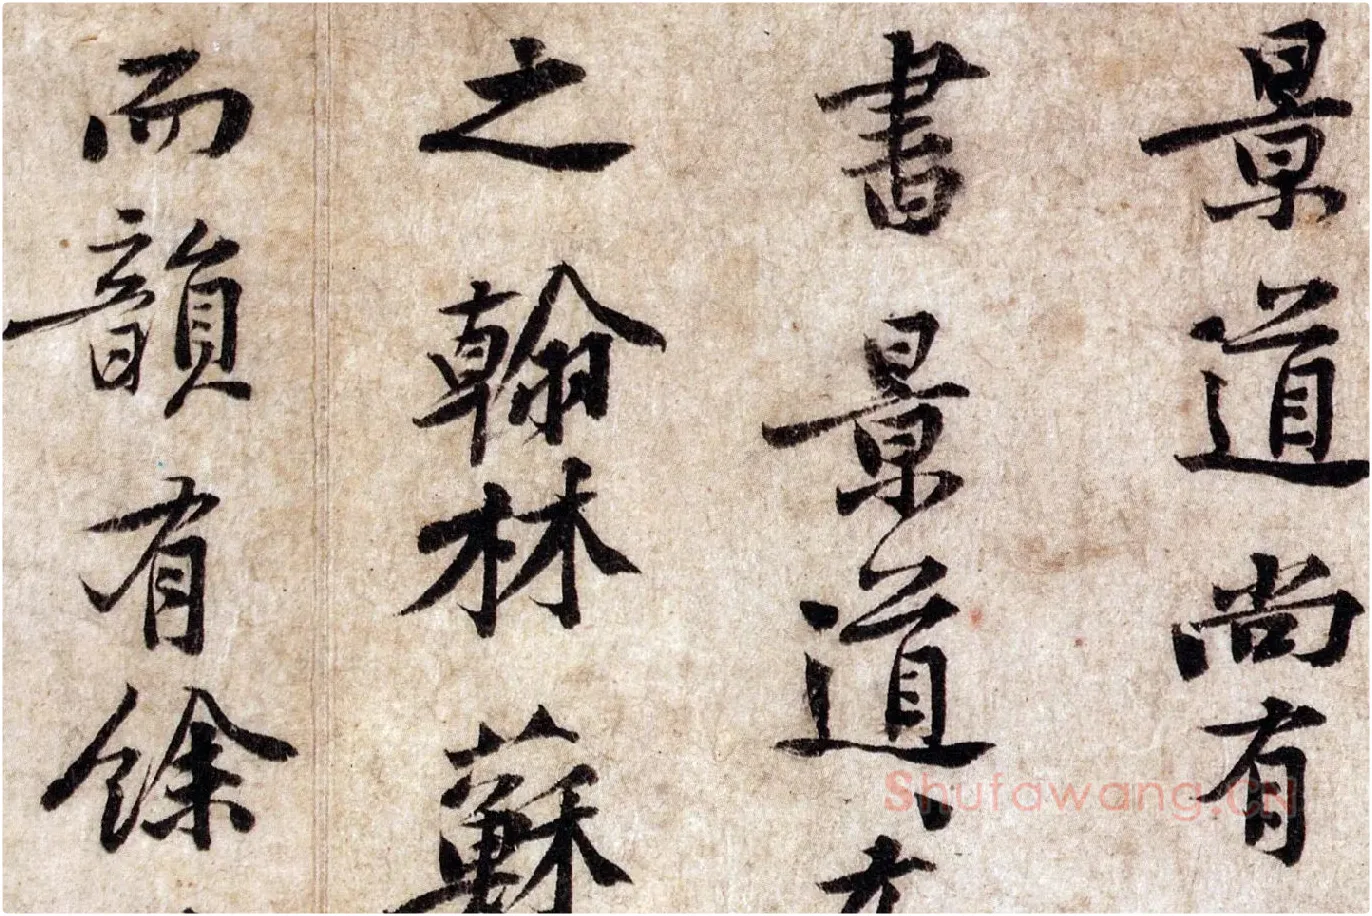 景道尚有
書景道
之翰林蘇
而韻有餘
Shufawang.CN